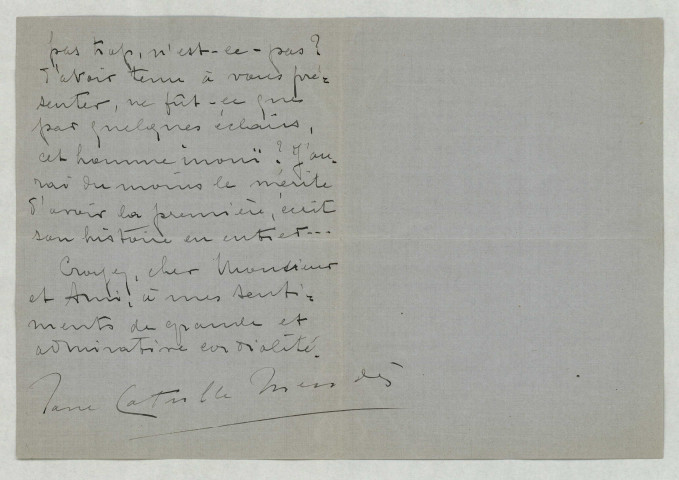 pas trop, n'est-ce-pas?
d'avoir tenu à vous pré-
senter, ne fût-ce que
par quelques éclairs,
cet homme inouï? J'au-
rai du moins le mérite
d'avoir la première, écrit
son histoire en entier...
Croyez, cher Monsieur
et Ami, à mes senti-
ments de grande et
admirative cordialité.
Jane Catulle Mendès